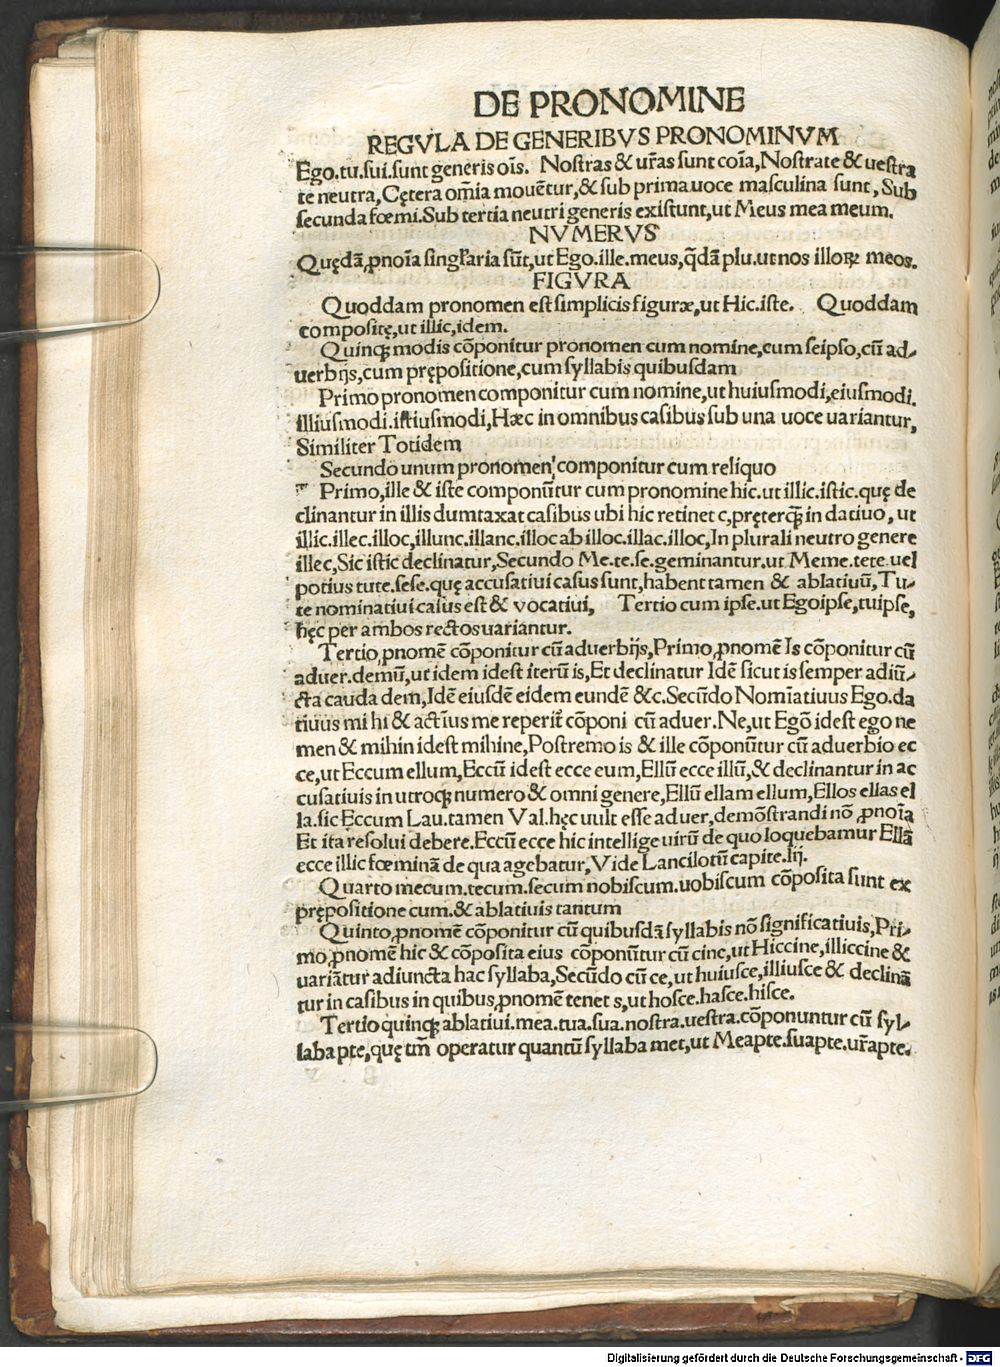 DE PRONOMINE
REGVLA DE GENERIBVS PRONOMINVM
Ego.tu.sui.sunt generis oīs. Nostras & ur̄as sunt coīa,Nostrate & uestra
te neutra,Cętera om̄ia mouētur,& sub prima uoce masculina sunt, Sub
secunda fœmi.Sub tertia neutri generis existunt,ut Meus mea meum.
NVMERVS
Quędā,ꝓnoīa singl'aria sūt,ut Ego.ille.meus,q̄dā plu.ut nos illoꝝ meos.
FIGVRA
Quoddam pronomen est simplicis figuræ,ut Hic.iste. Quoddam
compositę,ut illic,idem.
Quinqꝫ modis cōponitur pronomen cum nomine,cum seipso,cū ad-
uerbijs,cum prępositione,cum syllabis quibusdam
Primo pronomen componitur cum nomine,ut huiusmodi,eiusmodi.
illiusmodi.istiusmodi,Hæc in omnibus casibus sub una uoce uariantur,
Similiter Totidem
Secundo unum pronomen componitur cum reliquo
Primo,ille & iste componūtur cum pronomine hic.ut illic.istic.quę de
clinantur in illis dumtaxat casibus ubi hic retinet c,pręterqꝫ in datiuo, ut
illic.illec.illoc,illunc.illanc.illoc ab illoc.illac.illoc,In plurali neutro genere
illec,Sic istic declinatur,Secundo Me.te.se.geminantur.ut Meme.tete uel
potius tute.sese.quę accusatiui casus sunt,habent tamen & ablatiuū,Tu-
te nominatiui casus est & vocatiui, Tertio cum ipse.ut Egoipse,tuipse,
hęc per ambos rectos uariantur.
Tertio,ꝓnomē cōponitur cū aduerbijs,Primo,ꝓnomē Is cōponitur cū
aduer.demū,ut idem idest iterū is,Et declinatur Idē sicut is semper adiū-
cta cauda dem,Idē eiusdē eidem eundē &c.Secūdo Nomīatiuus Ego.da
tiuus mi hi & actīus me reperit̄ cōponi cū aduer.Ne,ut Egō idest ego ne
men & mihin idest mihine,Postremo is & ille cōponūtur cū aduerbio ec
ce,ut Eccum ellum,Eccū idest ecce eum,Ellū ecce illū,& declinantur in ac
cusatiuis in utroqꝫ numero & omni genere,Ellū ellam ellum,Ellos ellas el
la.sic Eccum Lau.tamen Val.hęc uult esse aduer,demōstrandi nō ꝓnoīa
Et ita resolui debere.Eccū ecce hic intellige uirū de quo loquebamur Ellā
ecce illic fœminā de qua agebatur,Vide Lancilotū capite.Iij.
Quarto mecum.tecum.secum nobiscum.uobiscum cōposita sunt ex
prępositione cum.& ablatiuis tantum
Quinto,ꝓnomē cōponitur cū quibusdā syllabis nō significatiuis,Pri-
mo,ꝓnomē hic & cōposita eius cōponūtur cū cinc,ut Hiccine,illiccine &
uariātur adiuncta hac syllaba,Secūdo cū ce,ut huiusce,illiusce & declinā
tur in casibus in quibus,ꝓnomē tenet s,ut hosce.hasce.hisce.
Tertio quinqꝫ ablatiui.mea.tua.sua.nostra.uestra.cōponuntur cū syl-
laba pte,quę tm̄ operatur quantū syllaba met,ut Meapte.suapte.ur̄apte.
Digitalisierung gefördert durch die Deutsche Forschungsgemeinschaft - DFG